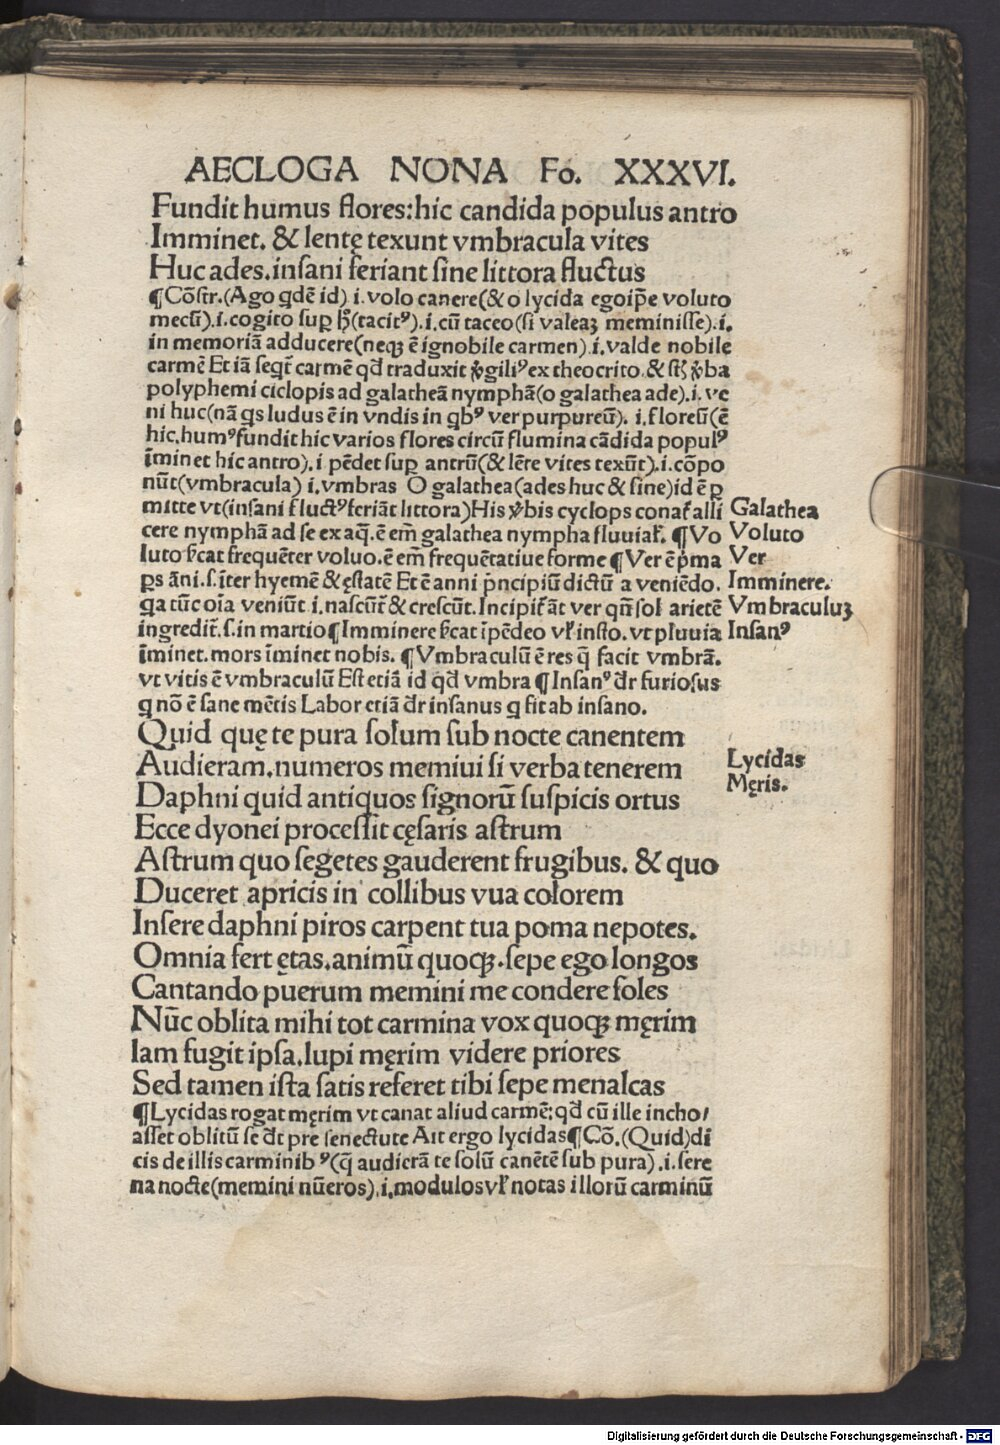 AECLOGA NONA Fo. XXXVI.
Fundit humus flores:hic candida populus antro
Imminet. & lentę texunt vmbracula vites
Huc ades.insani feriant sine littora fluctus
¶Cõstr.(Ago qdẽ id) .i. volo canere(& o lycida egoip̃e voluto
mecũ).i.cogito sup hͦ(tacitꝰ).i.cũ taceo(si valeaꝫ meminisse).i.
in memoriã adducere(neqꝫ ẽ ignobile carmen).i.valde nobile
carmẽ Et iã seqt̃ carmẽ qd̃ traduxit ꝟgiliꝰ ex theocrito & st̃ ꝟba
polyphemi ciclopis ad galatheã nymphã(o galathea ade).i. ve
ni huc(nã qs ludus ẽ in vndis in qbꝰ ver purpureũ). i.floreũ(ẽ
hic.humꝰfundit hic varios flores circũ flumina cãdida populꝰ
ĩminet hic antro).i pẽdet sup antrũ(& lẽte vites texũt).i.cõpo
nũt(vmbracula) i.vmbras O galathea(ades huc & sine)id ẽ ꝑ
mitte vt(insani fluctꝰferiãt littora)His ꝟbis cyclops conat̃ alli
cere nymphã ad se ex aq̃.ẽ em̃ galathea nympha fluuial̃. ¶Vo
luto s̃cat frequẽter voluo.ẽ em̃ frequẽtatiue forme ¶Ver ẽ p̃ma
ꝑs ãni.s.ĩter hyemẽ & ęstatẽ Et ẽ anni p̃ncipiũ dictũ a veniẽdo.
qa tũc oĩa veniũt.i.nascũt̃ & crescũt.Incipit̃ ãt ver qñ sol arietẽ
ingredit̃.s.in martio¶Imminere s̃cat ĩpẽdeo vl̃ insto.vt pluuia
ĩminet.mors ĩminet nobis. ¶Vmbraculũ ẽ res q̃ facit vmbrã.
vt vitis ẽ vmbraculũ Est etiã id qd̃ vmbra ¶Insanꝰ dr̃ furiosus
q nõ ẽ sane mẽtis Labor etiã dr̃ insanus q fit ab insano.
Galathea
Voluto
Ver
Imminere.
Vmbraculuꝫ
Insanꝰ
Quid quę te pura solum sub nocte canentem
Audieram.numeros memiui si verba tenerem
Daphni quid antiquos signorũ suspicis ortus
Ecce dyonei processit cęsaris astrum
Astrum quo segetes gauderent frugibus. & quo
Duceret apricis in collibus vua colorem
Insere daphni piros carpent tua poma nepotes.
Omnia fert ętas.animũ quoqꝫ.sepe ego longos
Cantando puerum memini me condere soles
Nũc oblita mihi tot carmina vox quoqꝫ męrim
Iam fugit ipsa.lupi męrim videre priores
Sed tamen ista satis referet tibi sepe menalcas
Lycidas
Męris.
¶Lycidas rogat męrim vt canat aliud carmẽ:qd̃ cũ ille incho/
asset oblitũ se dt̃ pre senectute Ait ergo lycidas¶Cõ.(Quid)di
cis de illis carminibꝰ(q̃ audierã te solũ canẽtẽ sub pura).i.sere
na nocte(memini nũeros).i.modulos vl̃ notas illorũ carminũ
Digitalisierung gefördert durch die Deutsche Forschungsgemeinschaft - DFG